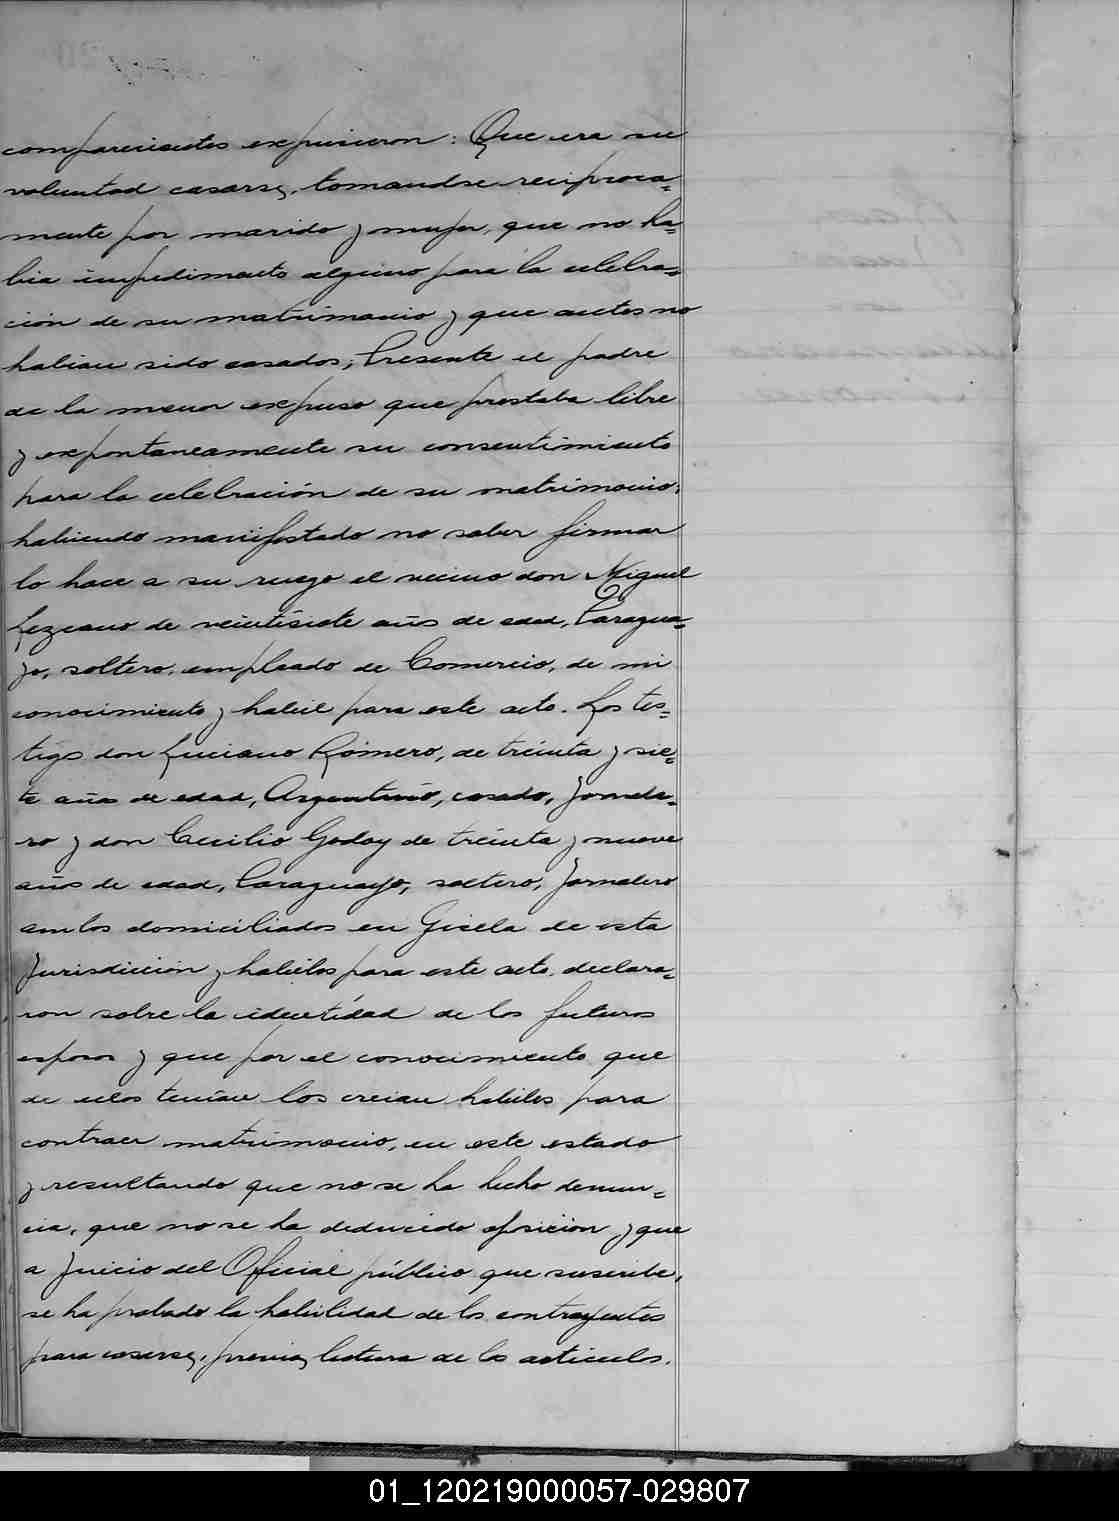 comparecientes expusieron: Que era su
voluntad casarse, tomandose reciproca=
mente por marido y mujer, que no ha=
bia impedimento alguno para la celebra=
ción de su matrimonio y que antes no
habian sido casados; Presente el padre
de la menor expuso que prestaba libre
y expontaneamente su consentimiento
para la celebración de su matrimonio,
habiendo manifestado no saber firmar
lo hace a su ruego el vecino don Miguel
Lezcano de veintisiete años de edad, Paragua=
yo, soltero, empleado de Comercio, de mi
conocimiento y habil para este acto. Los tes=
tigs don Luciano Romero, de treinta y sie=
te años de edad, Argentino, casado, Jornale=
ro y don Cecilio Godoy de treinta y nueve
años de edad, Paraguayo, soltero, Jornalero
ambos domiciliados en Gisela de esta
Jurisdicción y habiles para este acto, declara=
ron sobre la identidad de los futuros
esposos y que por el conocimiento que
de ellos tenian los creian habiles para
contraer matrimonio, en este estado
y resultando que no se ha hecho denun=
cia, que no se ha deducido oposicion y que
a Juicio del Oficial público que suscribe,
se ha probado la habilidad de los contrayentes
para casarse, previa lectura de los articulos.
01_120219000057-029807